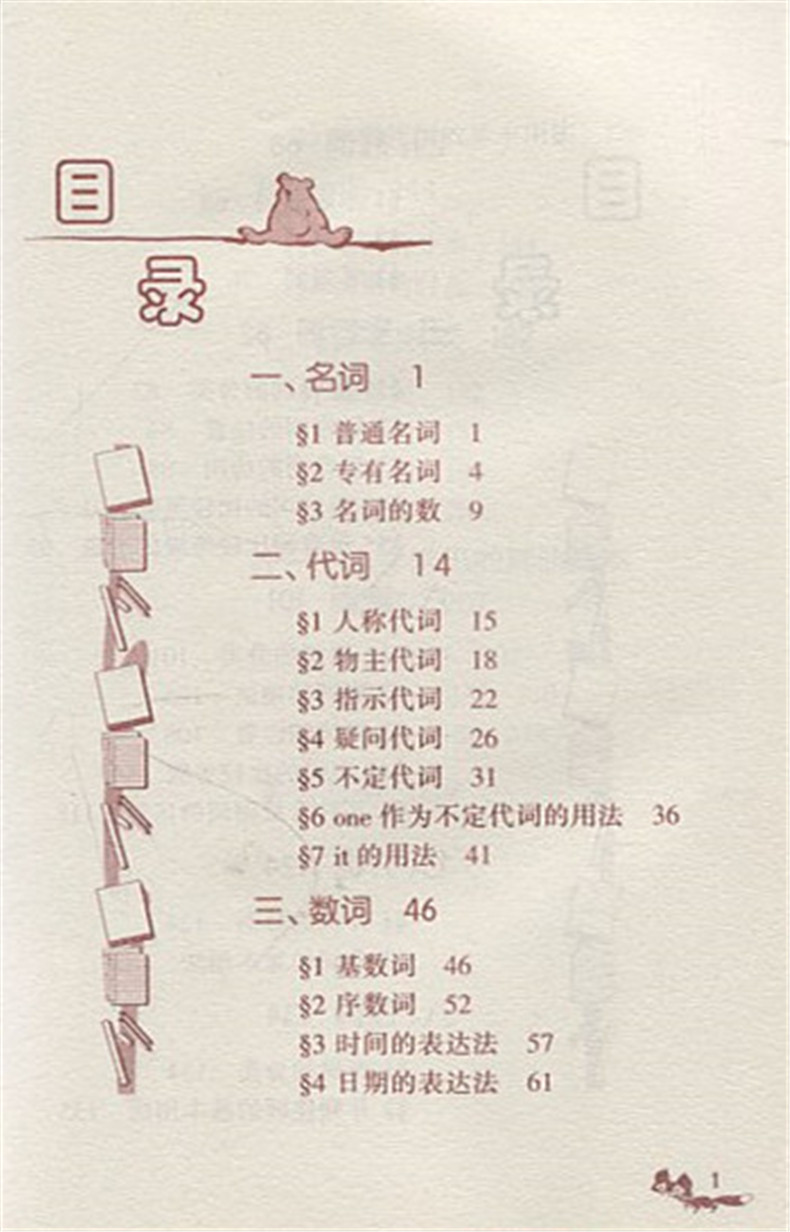 目
录
一、名词 1
§1 普通名词 1
§2 专有名词 4
§3 名词的数 9
二、代词 14
§1 人称代词 15
§2 物主代词 18
§3 指示代词 22
§4 疑问代词 26
§5 不定代词 31
§6 one 作为不定代词的用法 36
§7 it 的用法 41
三、数词 46
§1 基数词 46
§2 序数词 52
§3 时间的表达法 57
§4 日期的表达法 61
1